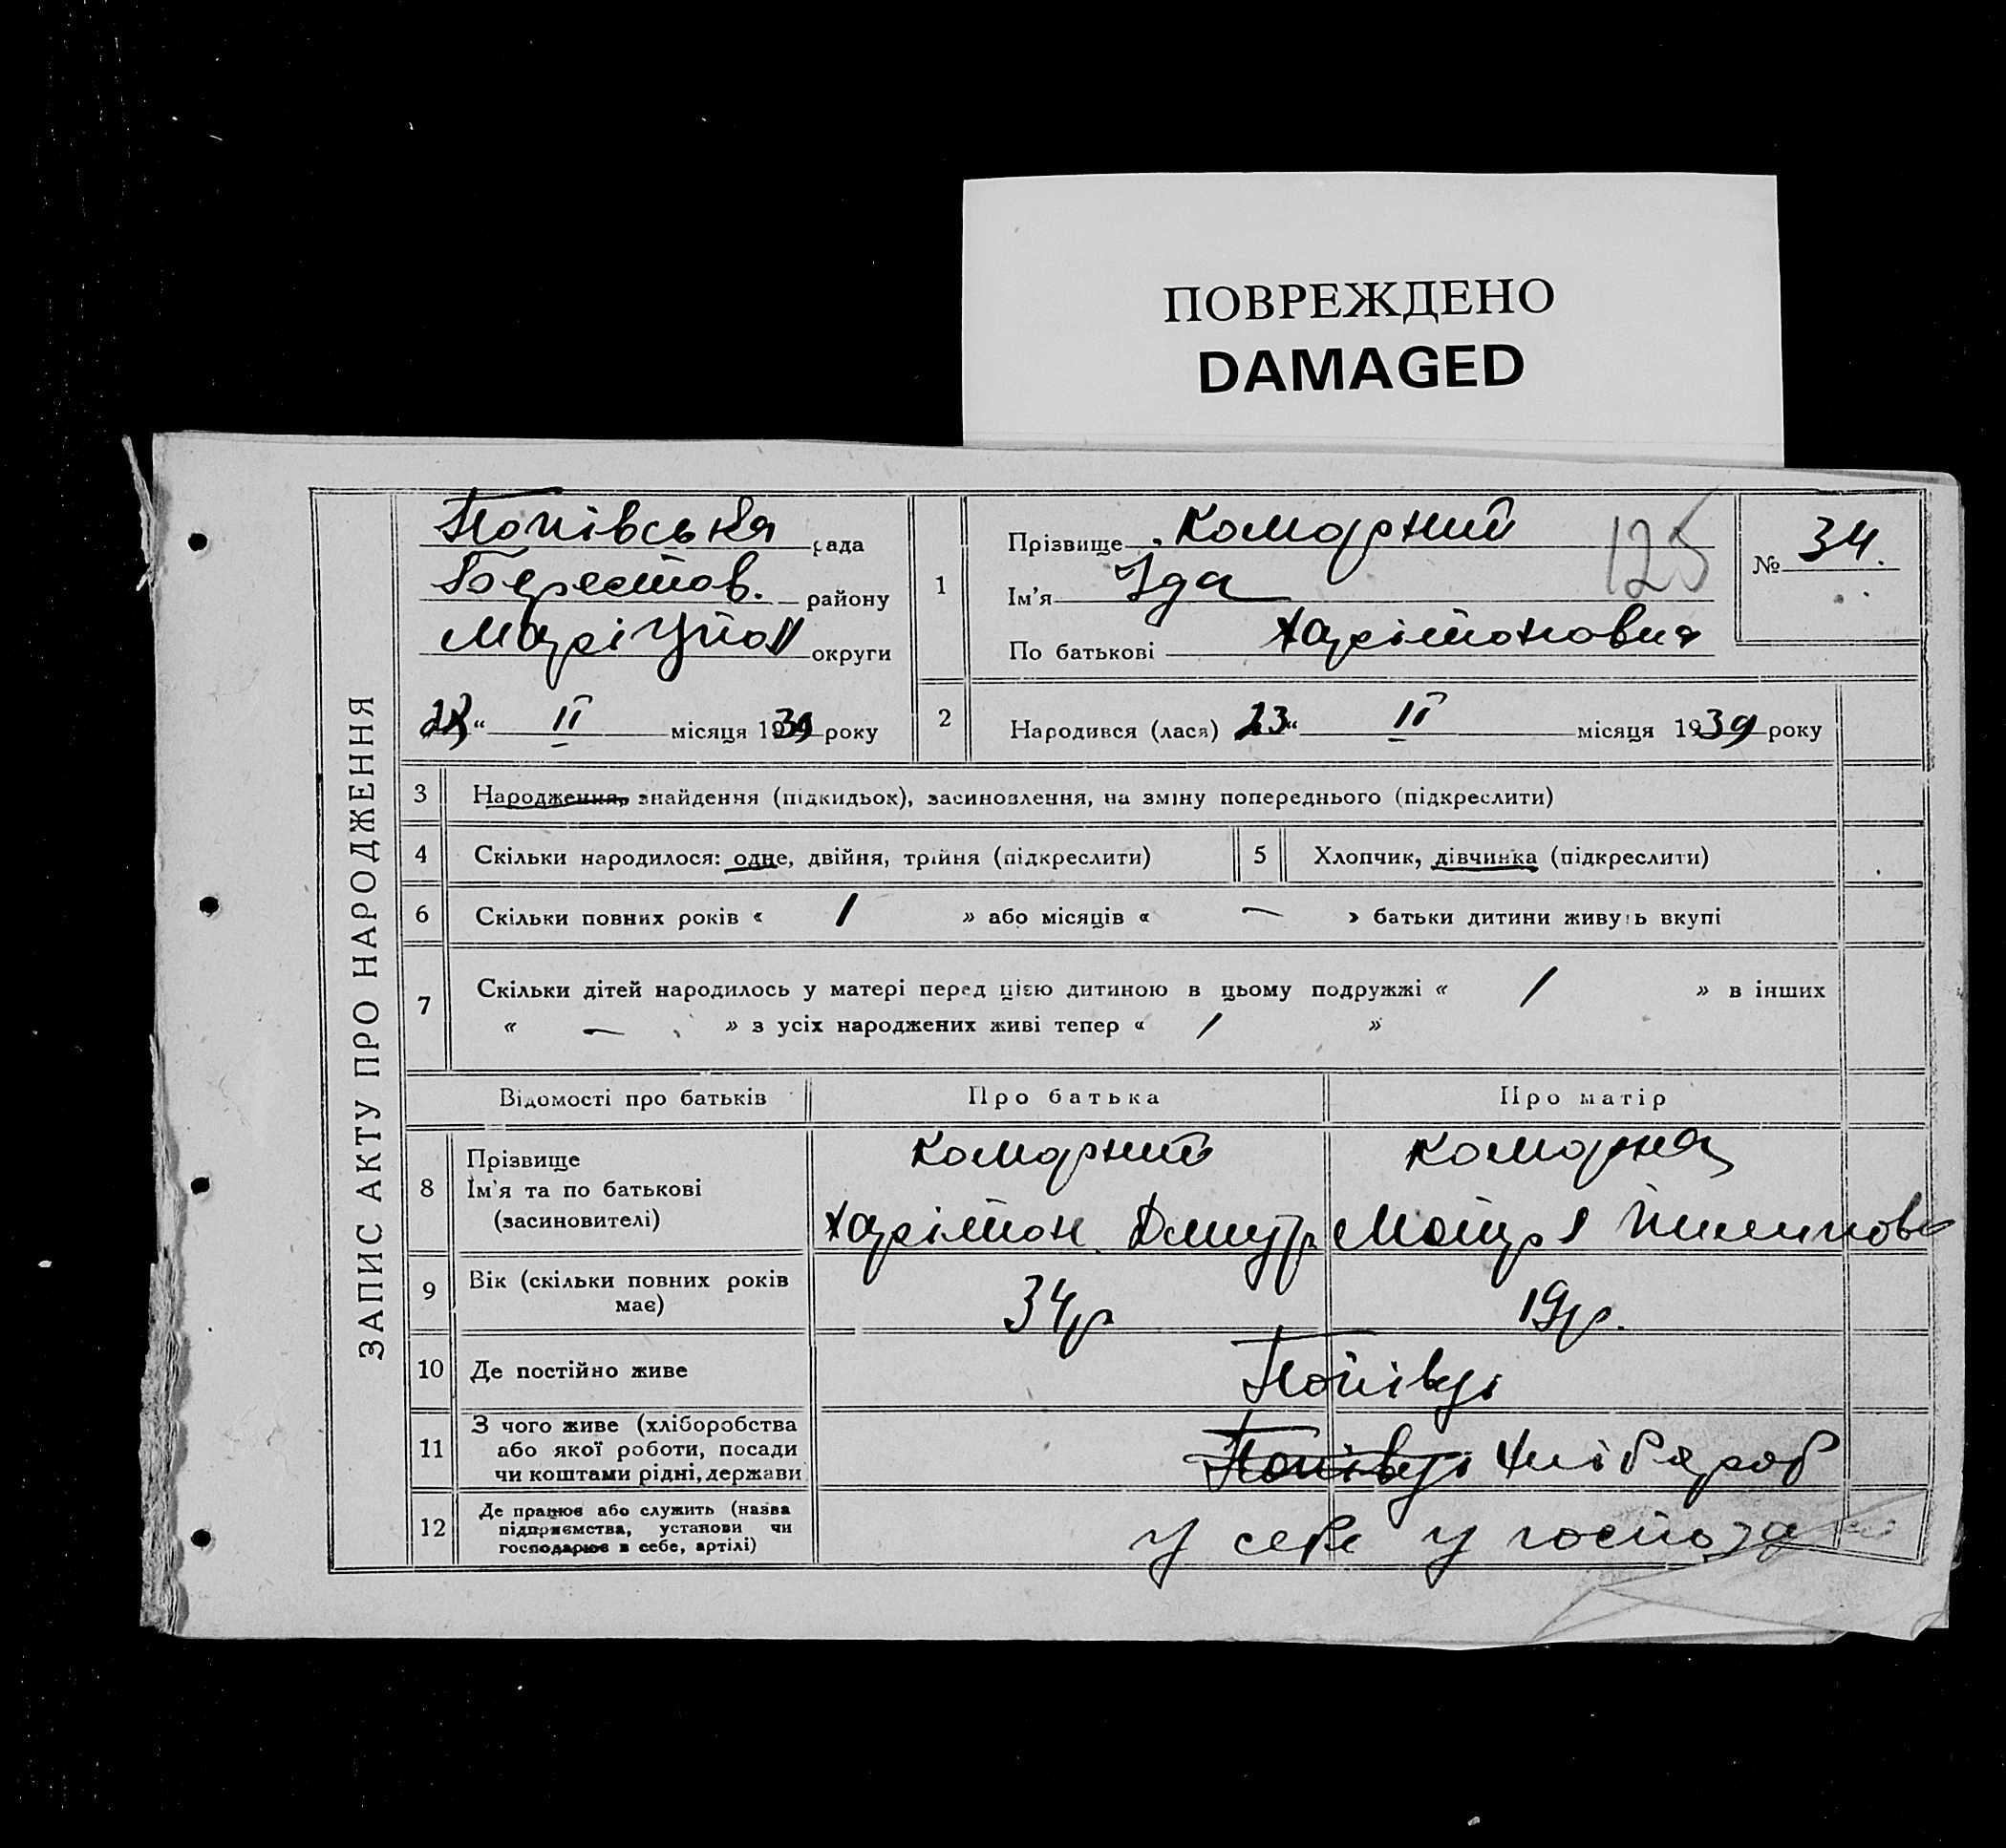 ПОВРЕЖДЕНО
DAMAGED
ЗАПИС АКТУ ПРО НАРОДЖЕННЯ
Попівська рада
Берестов. району
Маріупол округи
II місяця 1930 року
1
Прізвище Комарний
125
Ім'я Іда
По батькові Харітоновна
№ 34.
2
Народився (лася) 23 " II місяця 1930 року
3 Народження, знайдення (підкидьок), засиновлення, на зміну попереднього (підкреслити)
4 Скільки народилося: одне, двійня, трійня (підкреслити)
5 Хлопчик, дівчинка (підкреслити)
6 Скільки повних років « 1 » або місяців « — » батьки дитини живуть вкупі
7 Скільки дітей народилось у матері перед цією дитиною в цьому подружжі « 1 » в інших
« — » з усіх народжених живі тепер « 1 »
Відомості про батьків Про батька Про матір
8 Прізвище
Ім'я та по батькові
(засиновителі)
Комарний
Харітон Дмитр
Комарна
Мотря Пилипов
9 Вік (скільки повних років
має)
34 р
19 р.
10 Де постійно живе
Попівці
11 З чого живе (хліборобства
або якої роботи, посади
чи коштами рідні, держави
Попівці хлібароб
12 Де працює або служить (назва
підприємства, установи чи
господарює в себе, артілі)
у себе у